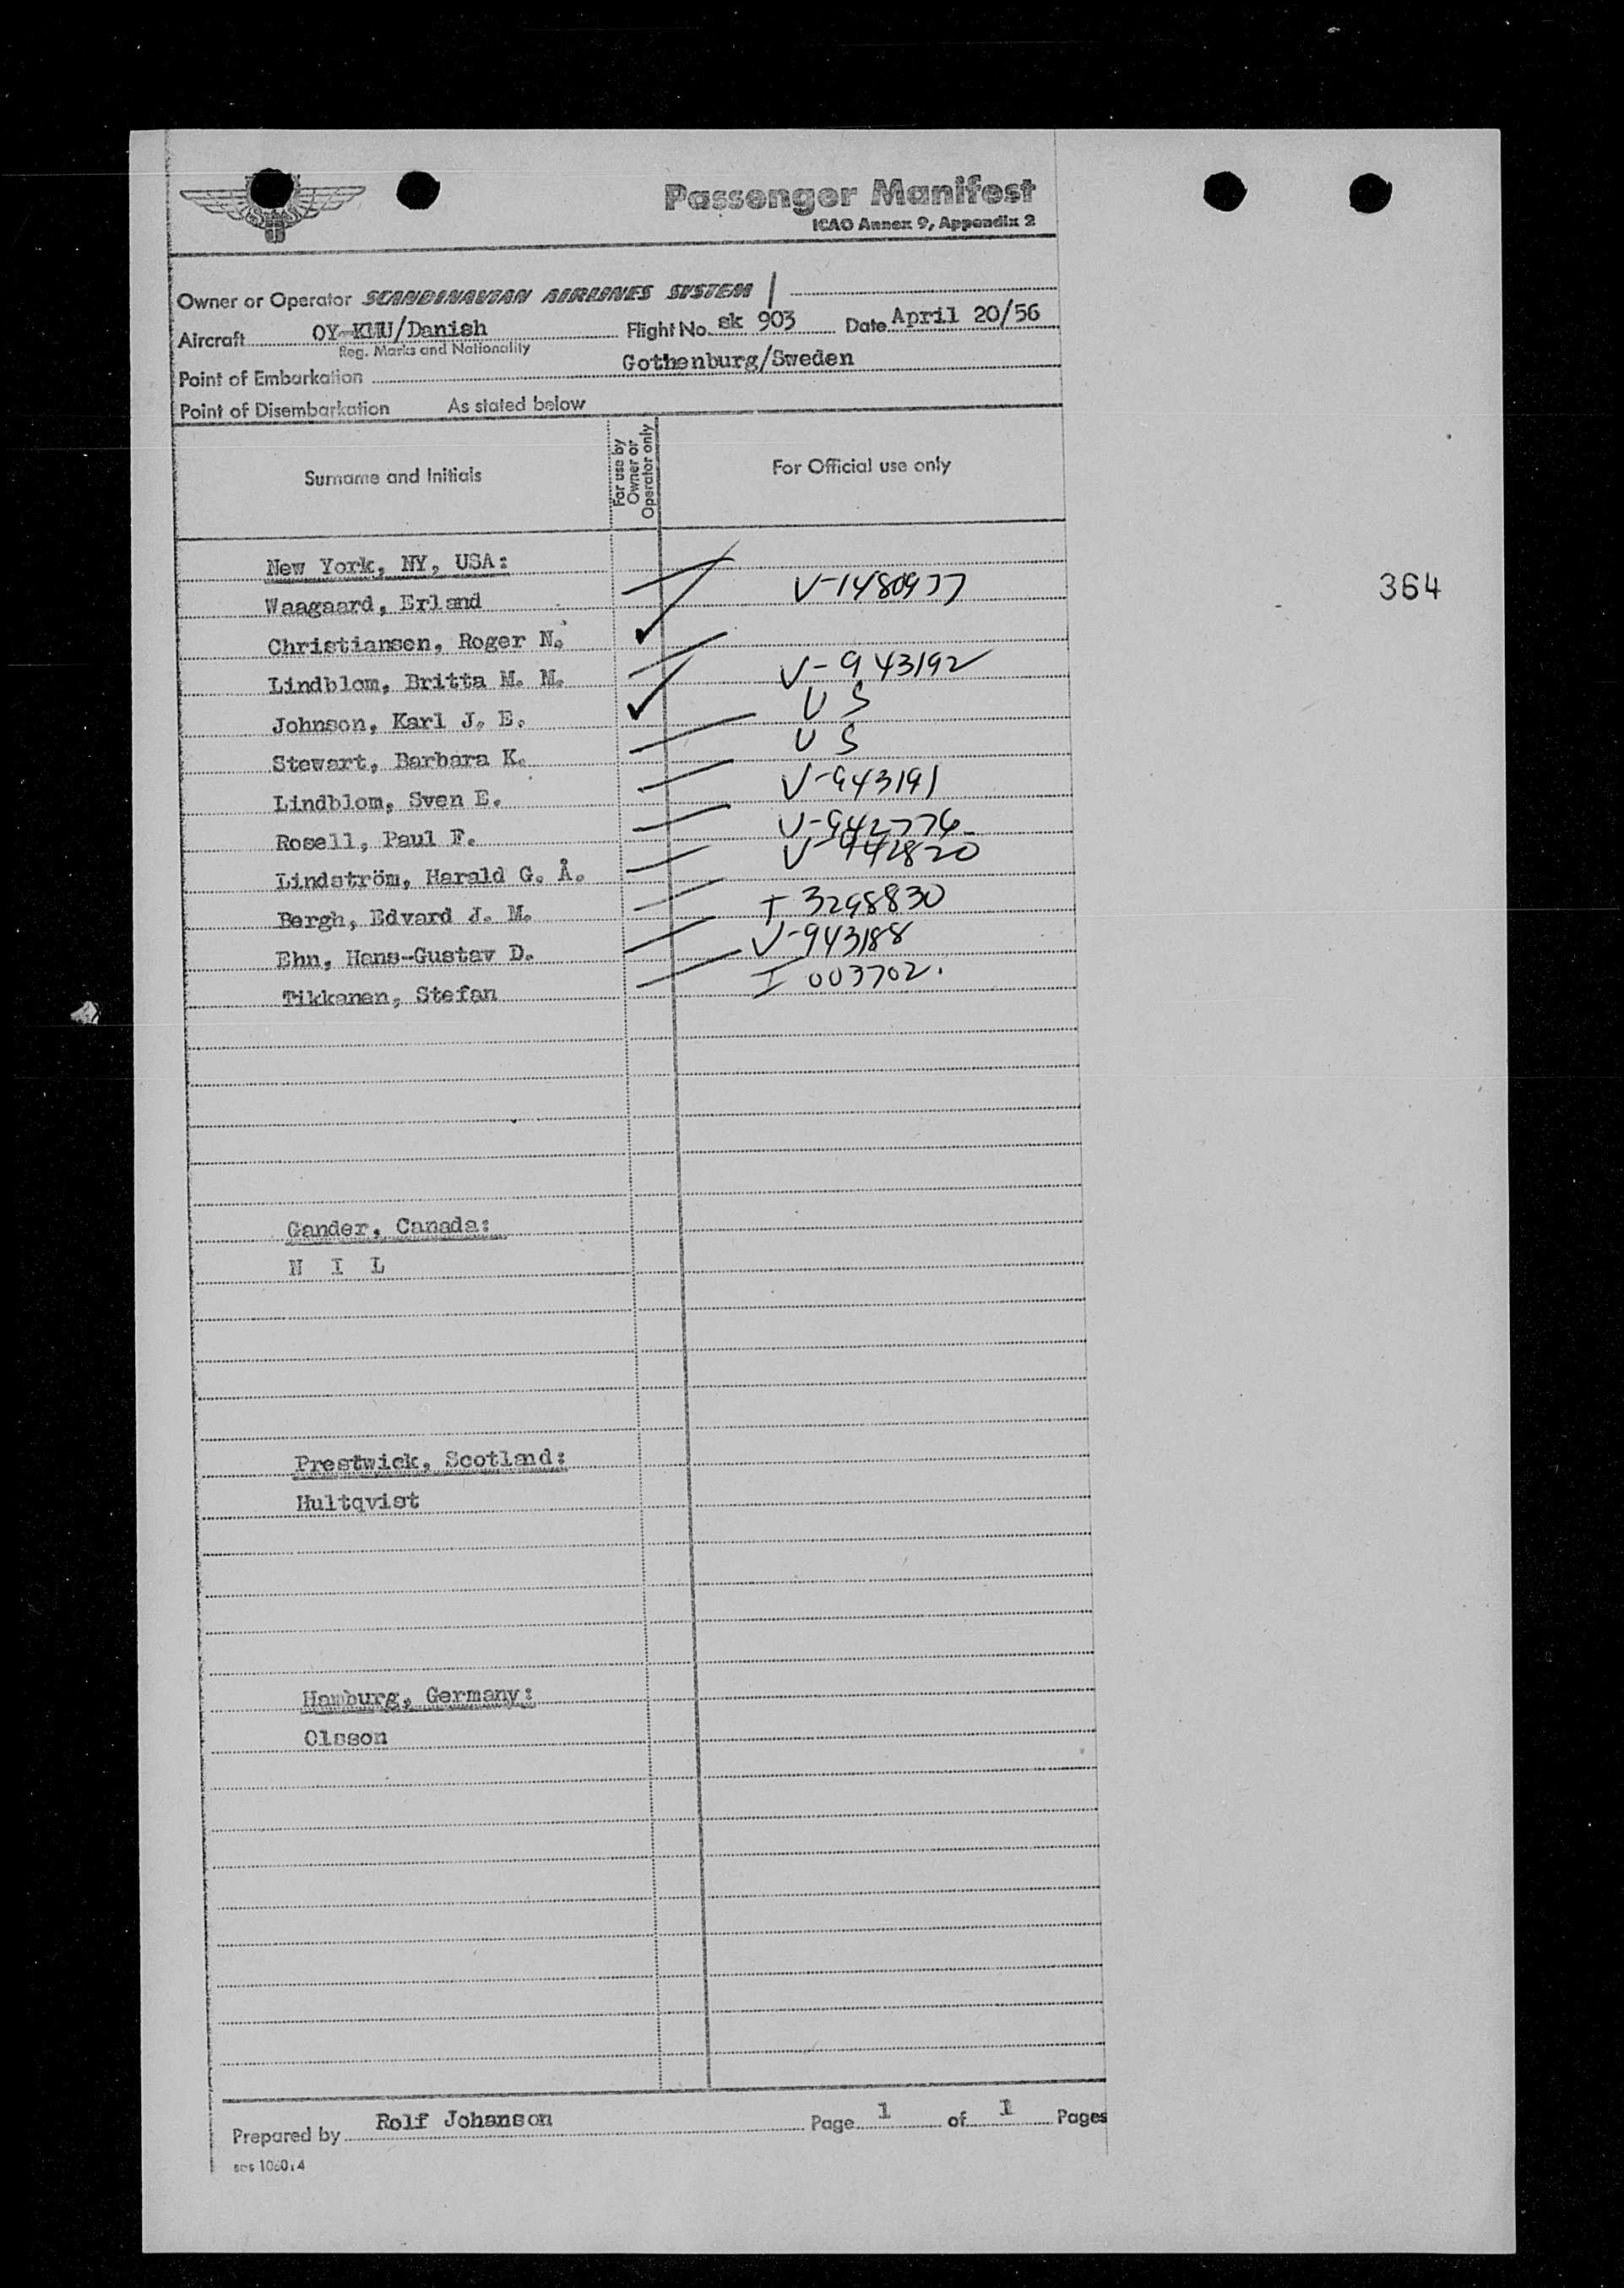 Passenger Manifest
ICAO Annex 9, Appendix 2
Owner or Operator SCANDINAVIAN AIRLINES SYSTEM
Aircraft OY-KMU/Danish Flight No. sk 903 Date April 20/56
Reg. Marks and Nationality
Point of Embarkation Gothenburg/Sweden
Point of Disembarkation As stated below
Surname and Initials For use by Owner or Operator only For Official use only
New York, NY, USA:
Waagaard, Erland V-1480977
364
Christiansen, Roger N.
Lindblom, Britta M. M. V-943192
Johnson, Karl J. E. U S
Stewart, Barbara K. U S
Lindblom, Sven E. V-943191
Rosell, Paul F. V-942776
Lindström, Harald G. Å. V-942820
Bergh, Edvard J. M. I 3298830
Ehn, Hans-Gustav D. V-943188
Tikkanen, Stefan I 003702.
Gander, Canada:
N I L
Prestwick, Scotland:
Hultqvist
Hamburg, Germany:
Olsson
Prepared by Rolf Johanson Page 1 of 1 Pages